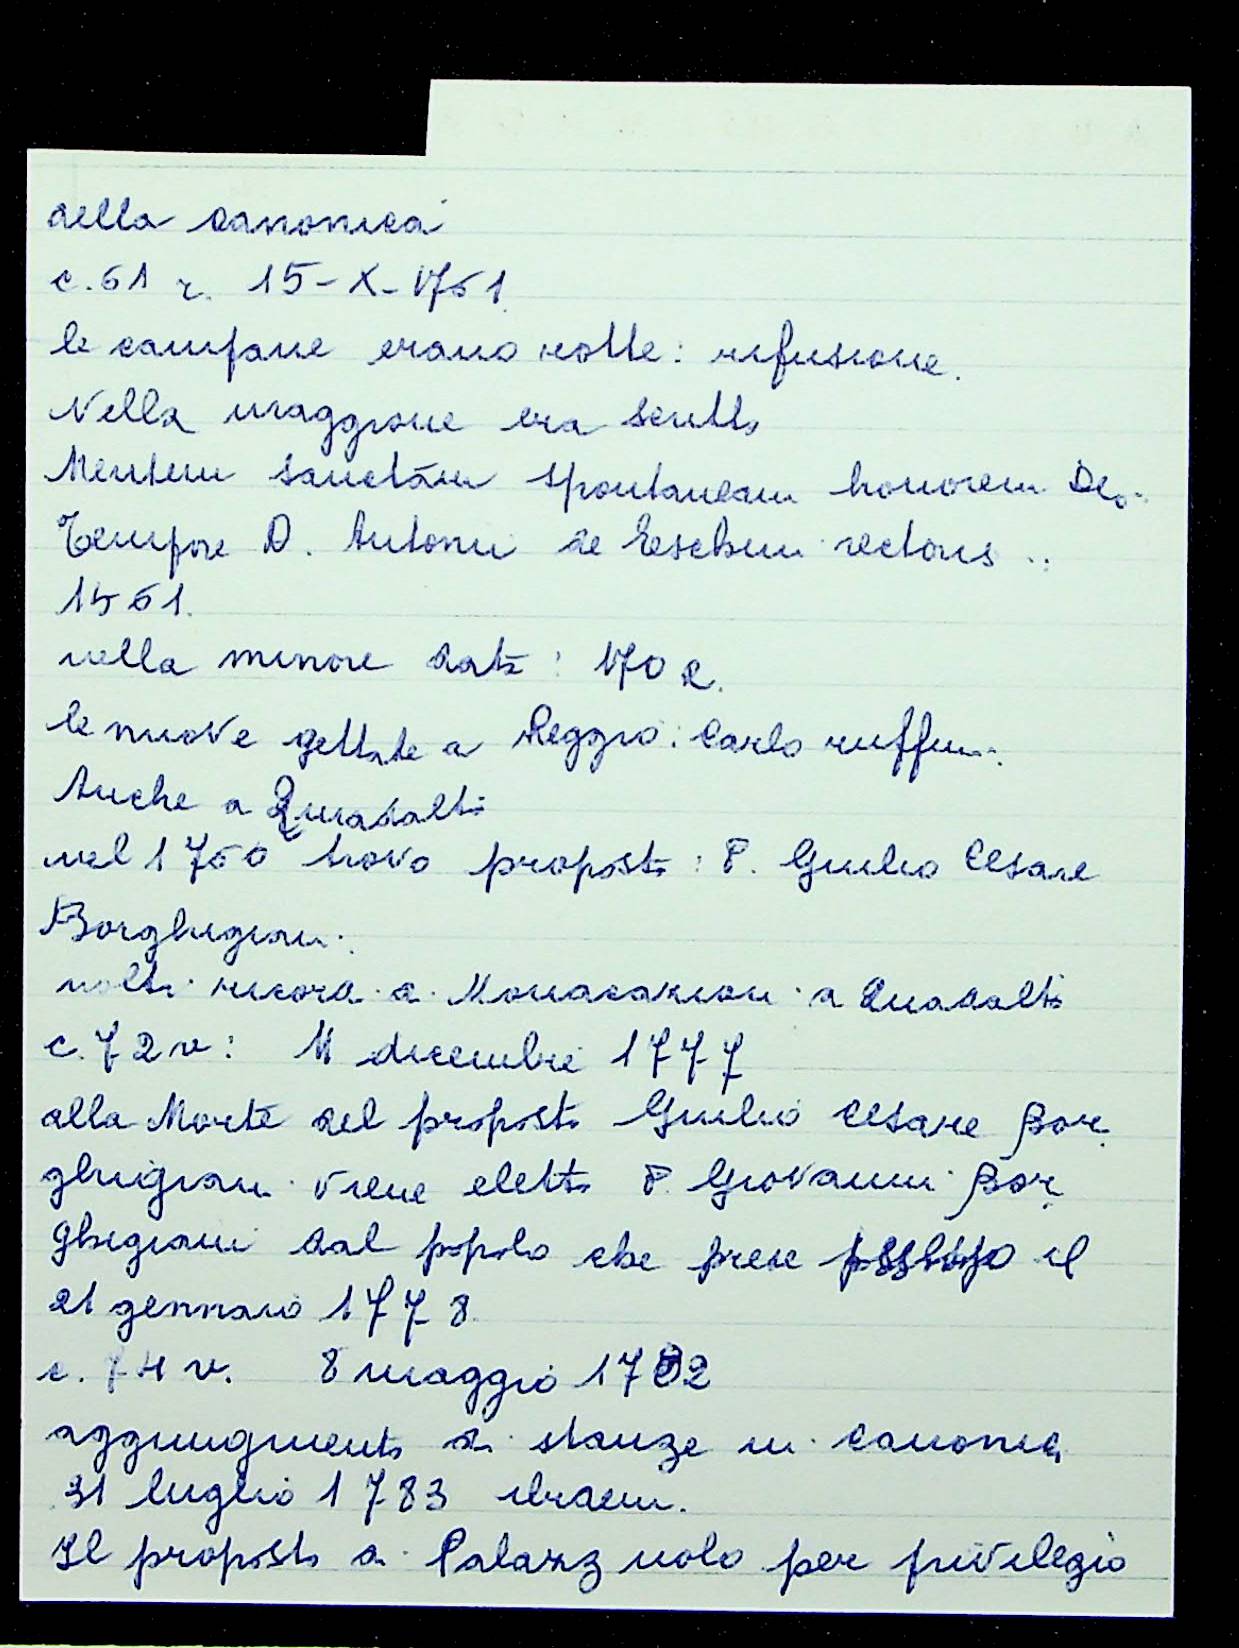 della canonica
c. 61 r. 15-X-1761.
le campane erano rotte: rifusione.
Nella maggiore era scritto
Mentem sanctam spontaneam honorem Deo.
Tempore D. Antonii de rectoris ..
1561.
nella minore data: 1702.
le nuove gettate a Reggio: Carlo ruffini.
Anche a Quadalto
nel 1760 trovo proposto: P. Giulio Cesare
Borghigiani.
molti ricordi di Monacazioni a Quadalto
c. 72 v: 11 dicembre 1777
alla Morte del proposto Giulio Cesare Bor
ghigiani viene eletto P. Giovanni Bor
ghigiani dal popolo che prese possesso il
21 gennaio 1778.
c. 74 v. 8 maggio 1782
aggiungimento di stanze in canonica
31 luglio 1783 ibidem.
Il proposto di Palazzuolo per privilegio